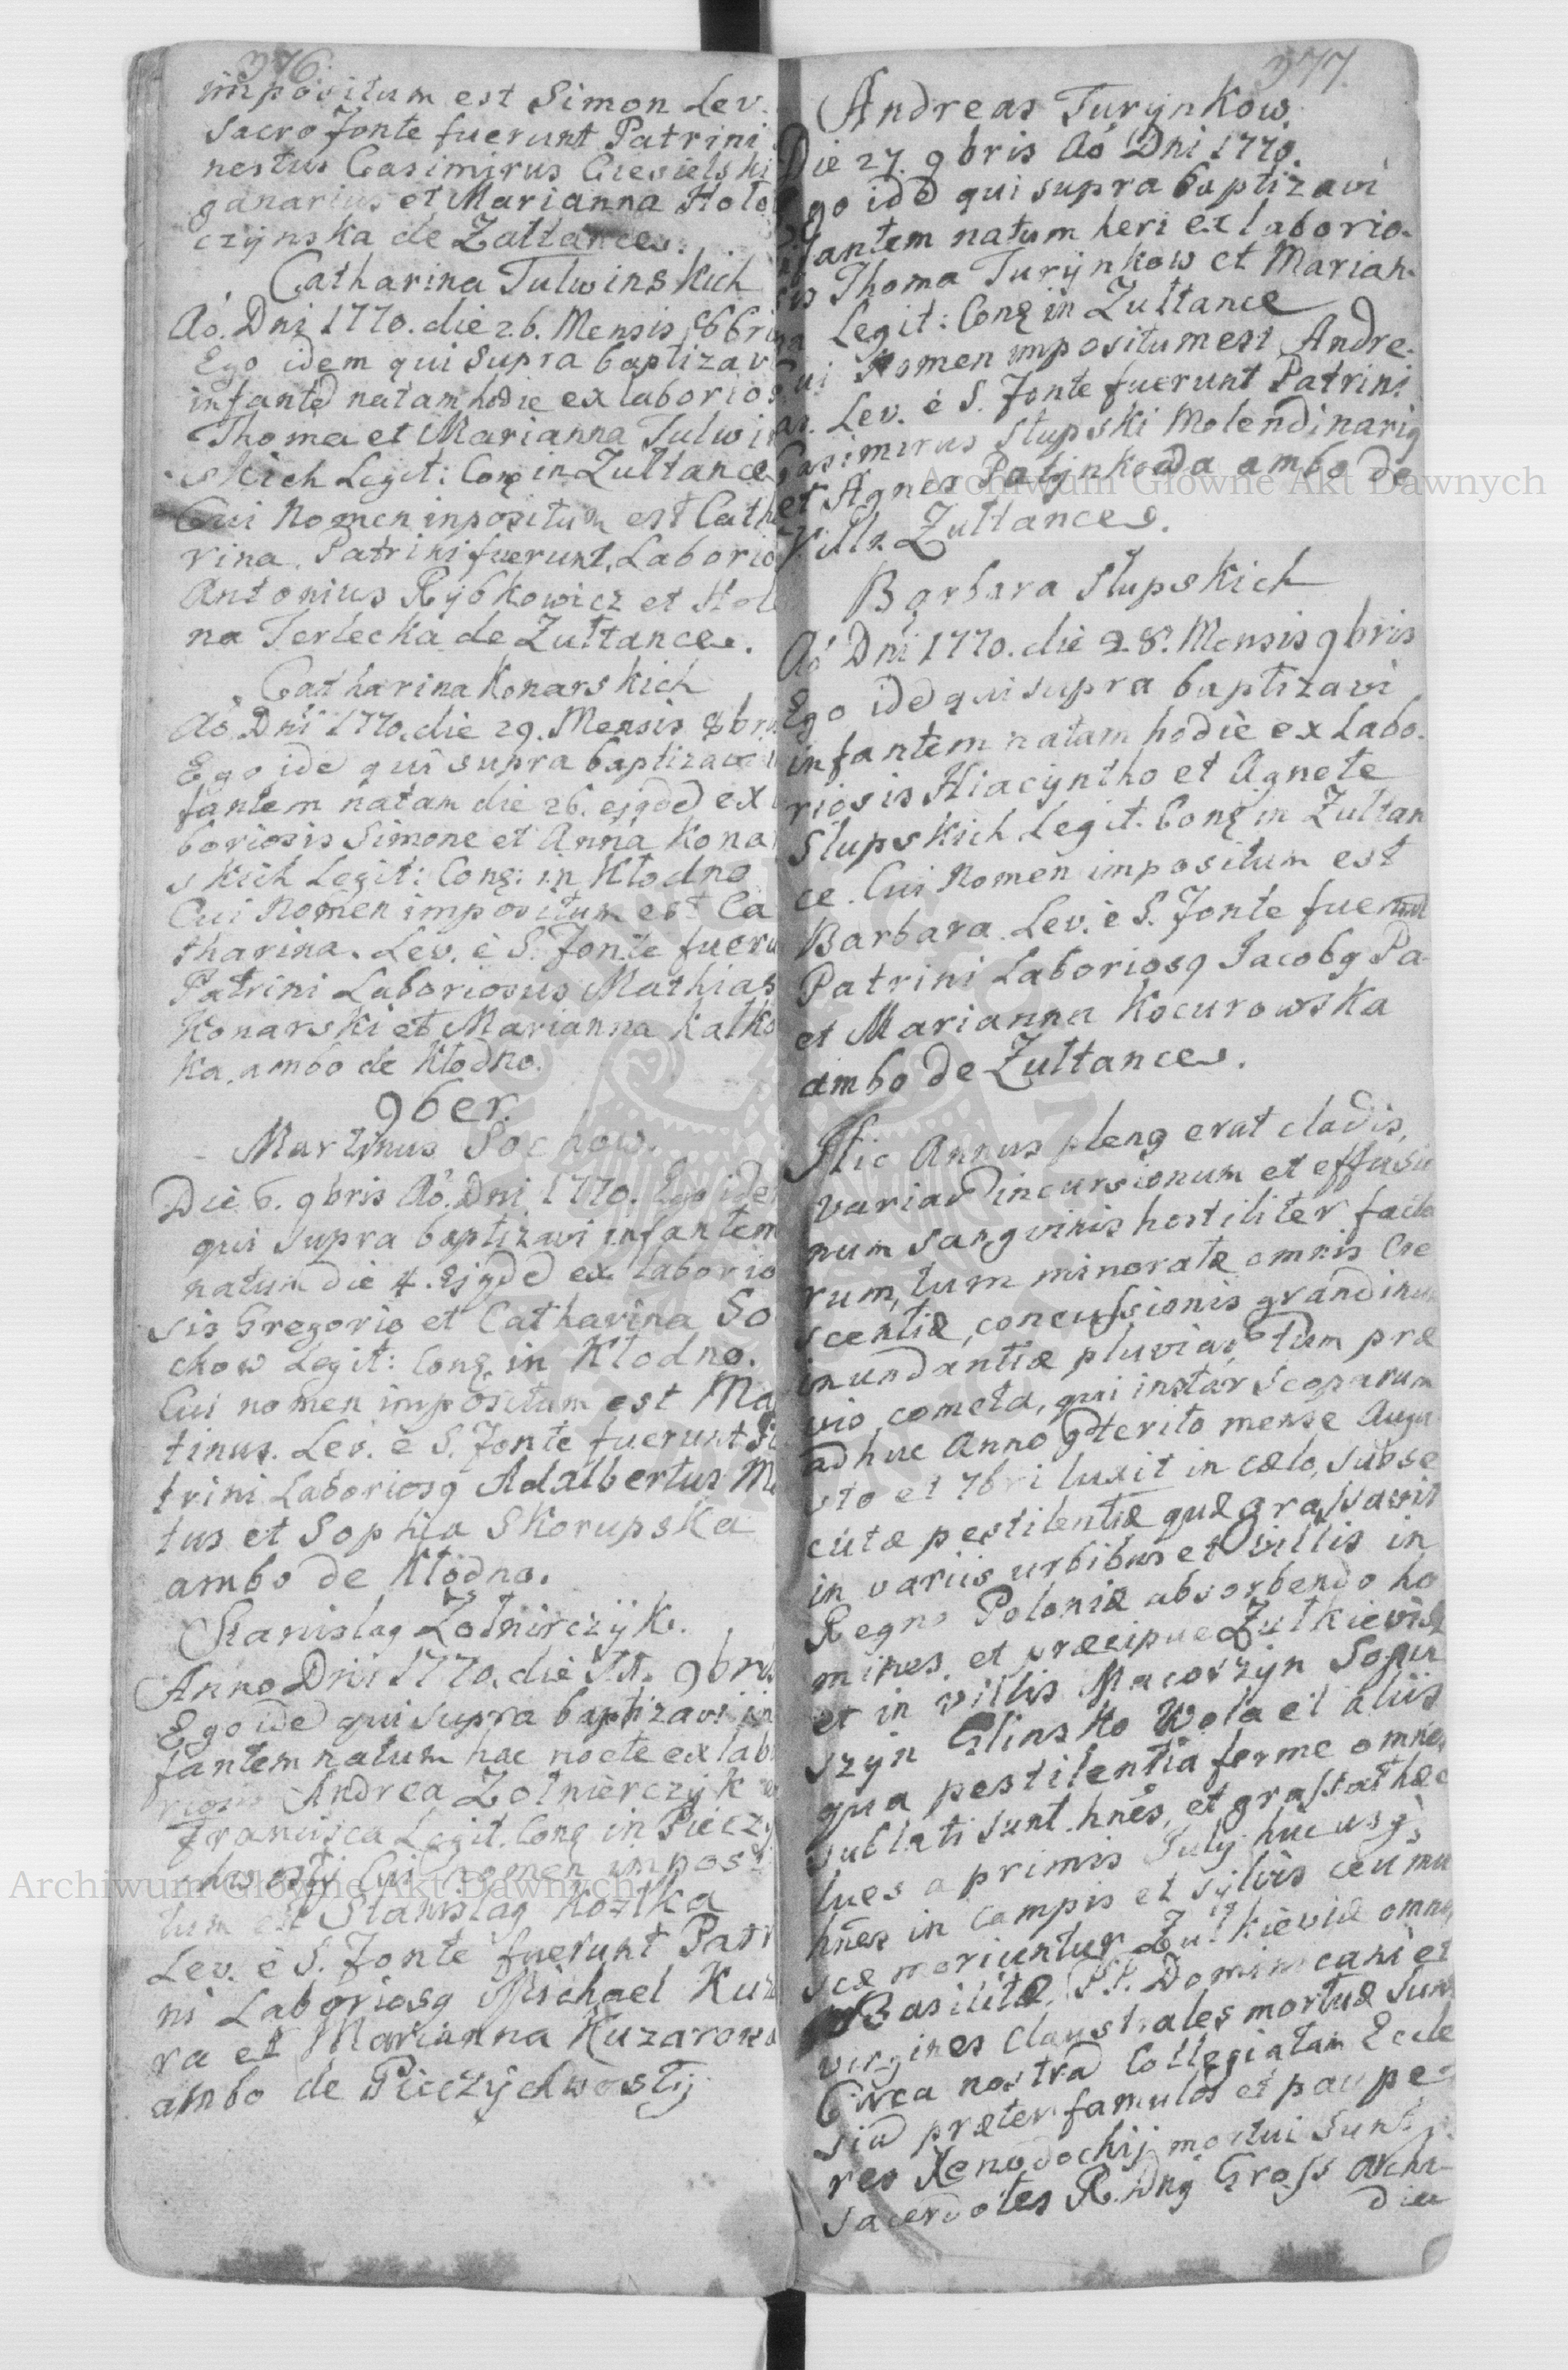 376.
impositum est Simon Lev.
sacro Fonte fuerunt Patrini
nestus Casimirus Ciesielski
ganarius et Marianna Hoło
czynska de Zułtance.
Catharina Tulwinskich
Aõ. Dni 1770. die 26. Mensis 8bri
Ego idem qui supra baptizavi
infantẽ natam hodie ex laborios
Thoma et Marianna Tulwin
skich Legit: Conȩ in Zułtance
Cui Nomen inpositum est Catha
rina. Patrini fuerunt Laborio
Antonius Rybkowicz et Hele
na Terlecka de Zułtance.
Catharina Konarskich
Aõ. Dni 1770. die 29. Mensis 8bris
Ego idẽ qui supra baptizavi
fantem natam die 26. ejqdẽ ex
boriosis Simone et Anna Konar
skich Legit: Conȩ: in Kłodno
Cui Nomen impositum est Ca
tharina. Lev. è S. Fonte fueru
Patrini Laboriosus Mathias
Konarski et Marianna Kałko
ka. ambo de Kłodno.
9ber.
Martinus Sochow.
Die 6. 9bris Aõ. Dni 1770. Ego idẽ
qui supra baptizavi infantem
natum die 4. Ejqdẽ ex laborio
sis Gregorio et Catharina So
chow Legit: Conȩ. in Kłodno.
Cui nomen impositum est Ma
tinus. Lev. è S. Fonte fuerunt
trini Laboriosq Adalbertus
tus et Sophia Skorupska
ambo de Kłodno.
Stanislaq Zołnirczyk.
Anno Dni 1770. die 9bris
Ego idẽ qui supra baptizavi in
fantem natum hac nocte ex lab
riosis Andrea Zołnierczyk
Francisca Legit. Conȩ in Pieczy
chwosty Cui nomen imposi
tum est Stanislaq Kostka
Lev. è S. Fonte fuerunt Patr
ni Laboriosq Michael Kuz
ra et Marianna Kuzarowa
ambo de Pieczychwosty
377.
Andreas Turynkow.
Die 27. 9bris Aõ Dni 1770.
Ego idẽ qui supra baptizavi
fantem natum heri ex laborio-
sis Thoma Turynkow et Marian-
na Legit: Conȩ in Zułtance
Cui Nomen impositum est Andre-
as. Lev. è S. Fonte fuerunt Patrini
Casimirus Słupski Molendinariq
et Agnes Patynkowa ambo de
Villa Zułtance.
Barbara Słupskich
Aõ Dni 1770. die 28. Mensis 9bris
Ego idẽ qui supra baptizavi
infantem natam hodie ex Labo-
riosis Hiacyntho et Agnete
Słupskich Legit. Conȩ in Zułtan
ce. Cui Nomen impositum est
Barbara. Lev. è S. Fonte fuerunt
Patrini Laboriosq Jacobq Pa-
et Marianna Kocurowska
ambo de Zułtance.
Hic Annus plenq erat cladis,
variarũ incursionum et effusio
num sangvinis hostiliter facta
rum, tum minoratæ omnis Cre
scentiæ, concussionis grandinum
inundantiæ pluviarũ. Tum præ
vio cometa, qui instar scoparum
adhuc Anno pterito mense Augu
sto et 7bri luxit in cælo, subse
cutæ pestilentiæ quæ grassavit
in variis urbibus et villis in
Regno Poloniæ absorbendo ho
mines, et præcipue Zułkieviæ
et in villis Macoszyn Sopu
szyn Glinsko Wola et aliis
qua pestilentia ferme omnes
sublati sunt hnes, et grassat hæc
lues a primis July hucusq
hnes in campis et sylvis ceu mu
scæ moriuntur Zułkieviæ omnes
Basilitæ, PP. Dominicani et
virgines claustrales mortuæ sunt
Circa nostrã Collegiatam Eccle
siã præter famulos et paupe-
res Xenodochij mortui sunt
sacerdotes R. Dnq Gross Archi-
dia
Archiwum Główne Akt Dawnych
Archiwum Główne Akt Dawnych